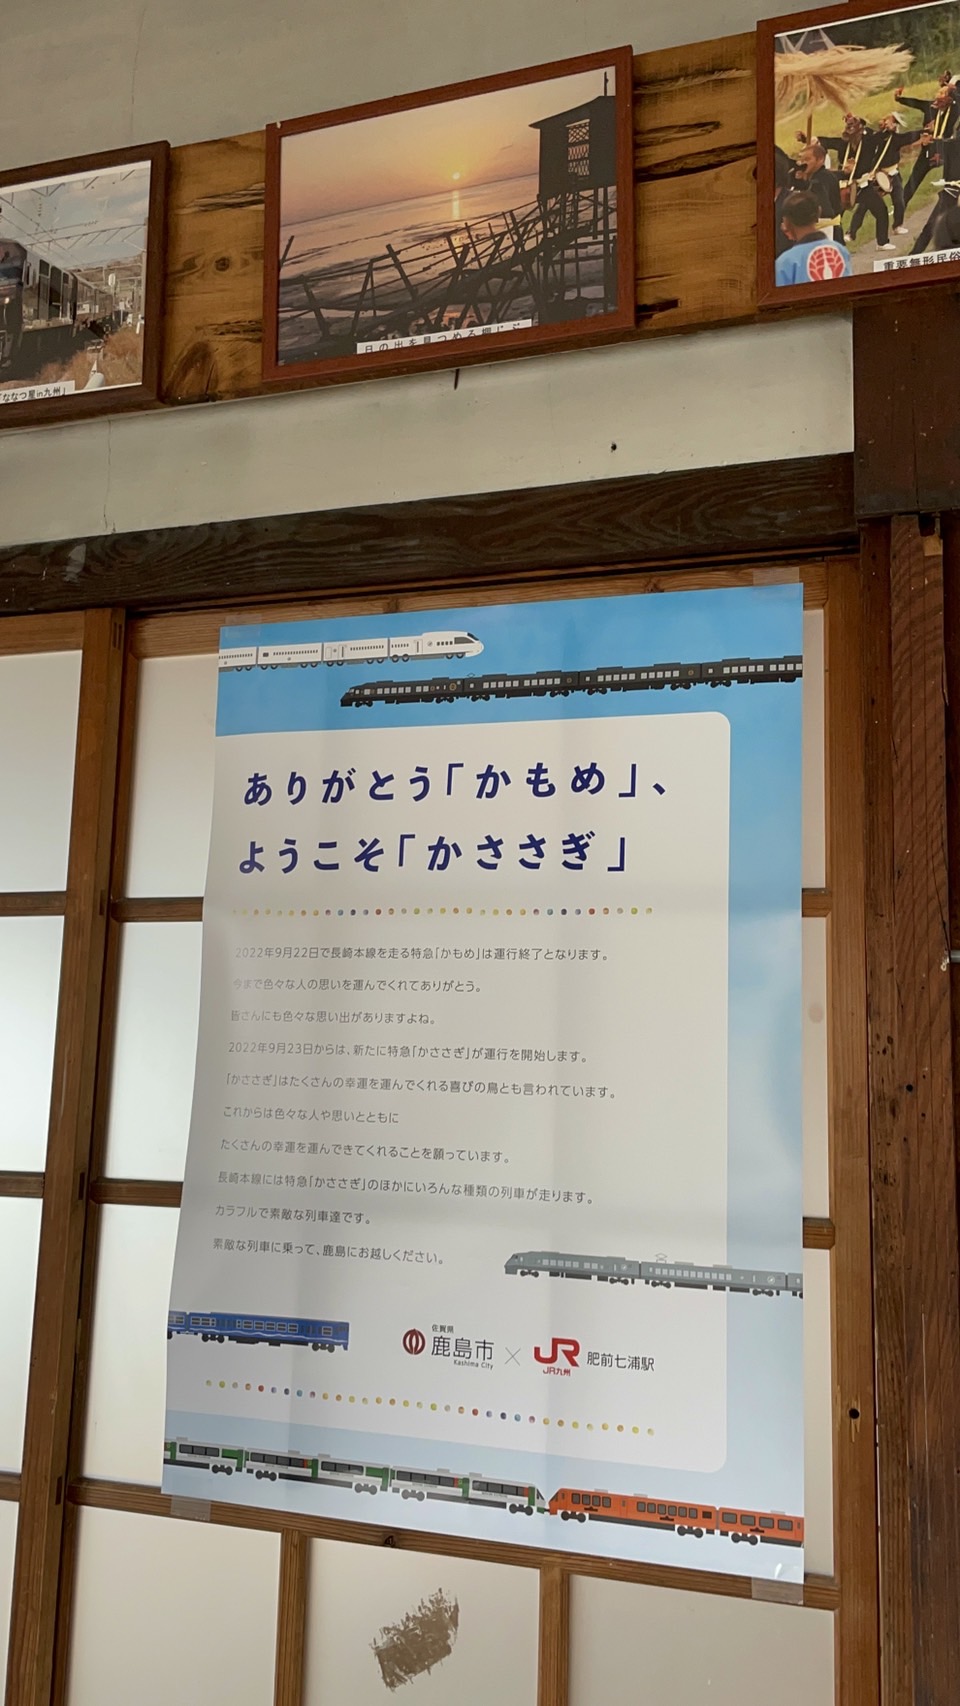 ななつ星in九州」
日の出を見つめる棚じぶ
重要無形民俗
ありがとう「かもめ」、
ようこそ「かささぎ」
2022年9月22日で長崎本線を走る特急「かもめ」は運行終了となります。
今まで色々な人の思いを運んでくれてありがとう。
皆さんにも色々な思い出がありますよね。
2022年9月23日からは、新たに特急「かささぎ」が運行を開始します。
「かささぎ」はたくさんの幸運を運んでくれる喜びの鳥とも言われています。
これからは色々な人や思いとともに
たくさんの幸運を運んできてくれることを願っています。
長崎本線には特急「かささぎ」のほかにいろんな種類の列車が走ります。
カラフルで素敵な列車達です。
素敵な列車に乗って、鹿島にお越しください。
佐賀県
鹿島市
Kashima City
×
JR
JR九州
肥前七浦駅